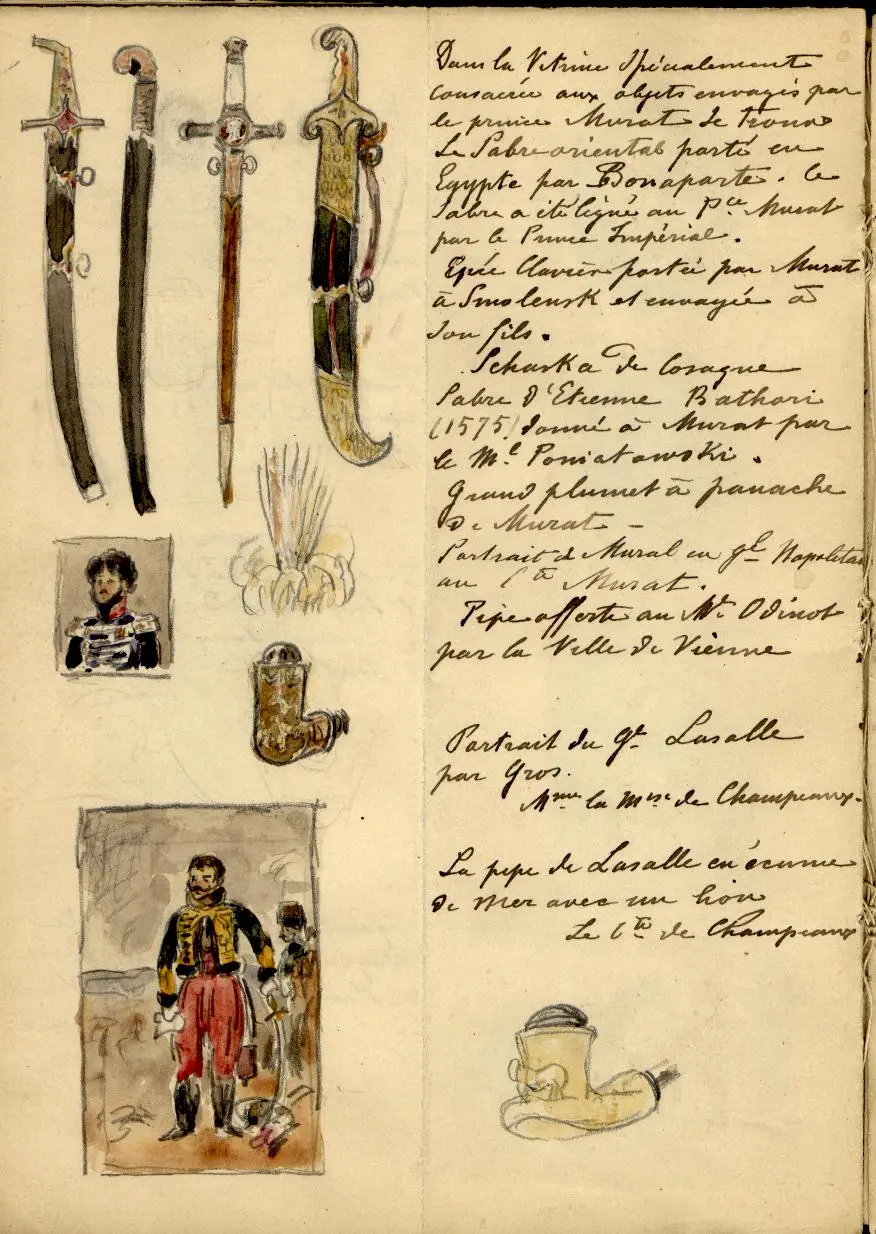 Dans la Vitrine Spécialement
consacrée aux objets envoyés par
le prince Murat se trouve
Le Sabre oriental porté en
Egypte par Bonaparte. ce
Sabre a été légué au Pce Murat
par le Prince Impérial.
Epée Clavier portée par Murat
à Smolensk et envoyée à
Son fils.
Schaska de Cosaque
Sabre d'Etienne Bathori
(1575) donné à Murat par
le Ml Poniatowski.
Grand plumet à panache
de Murat -
Portrait de Murat en gl Napolitain
au Cte Murat.
Pipe offerte au Ml Odinot
par la Ville de Vienne
Portrait du Gl Lasalle
par Gros.
Mme la Mise de Champeaux.
La pipe de Lasalle en écume
de mer avec un lion
Le Cte de Champeaux